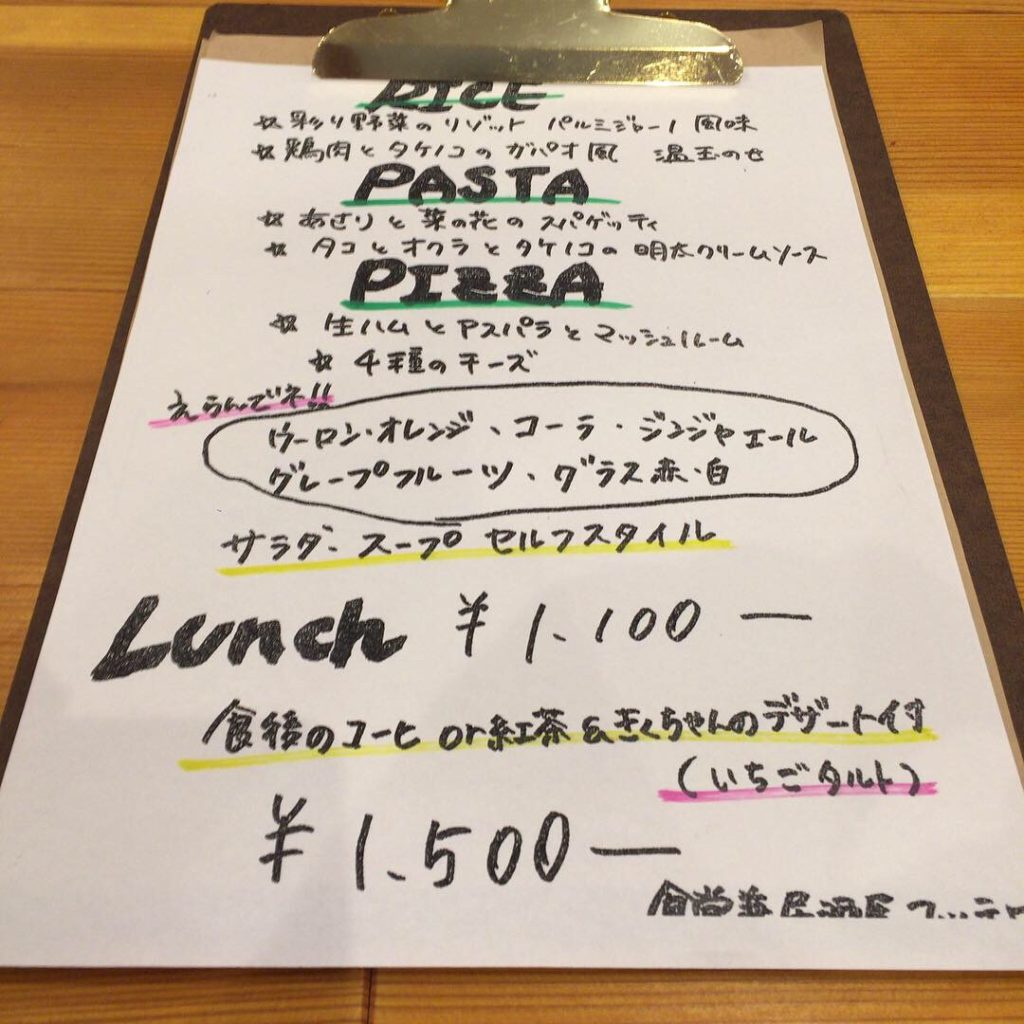 RICE
☆彩り野菜のリゾット パルミジャーノ風味
☆鶏肉とタケノコのガパオ風 温玉のせ
PASTA
☆あさりと菜の花のスパゲッティ
☆タコとオクラとタケノコの明太クリームソース
PIZZA
☆生ハムとアスパラとマッシュルーム
☆4種のチーズ
えらんでネ!!
ウーロン・オレンジ、コーラ・ジンジャエール
グレープフルーツ、グラス赤・白
サラダ・スープ セルフスタイル
Lunch ¥1.100―
食後のコーヒ or 紅茶 & きくちゃんのデザート付
(いちごタルト)
¥1.500―